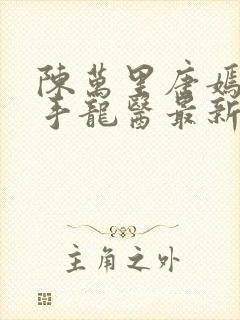 陳萬里唐嫣
手龍醫最新
主角之外